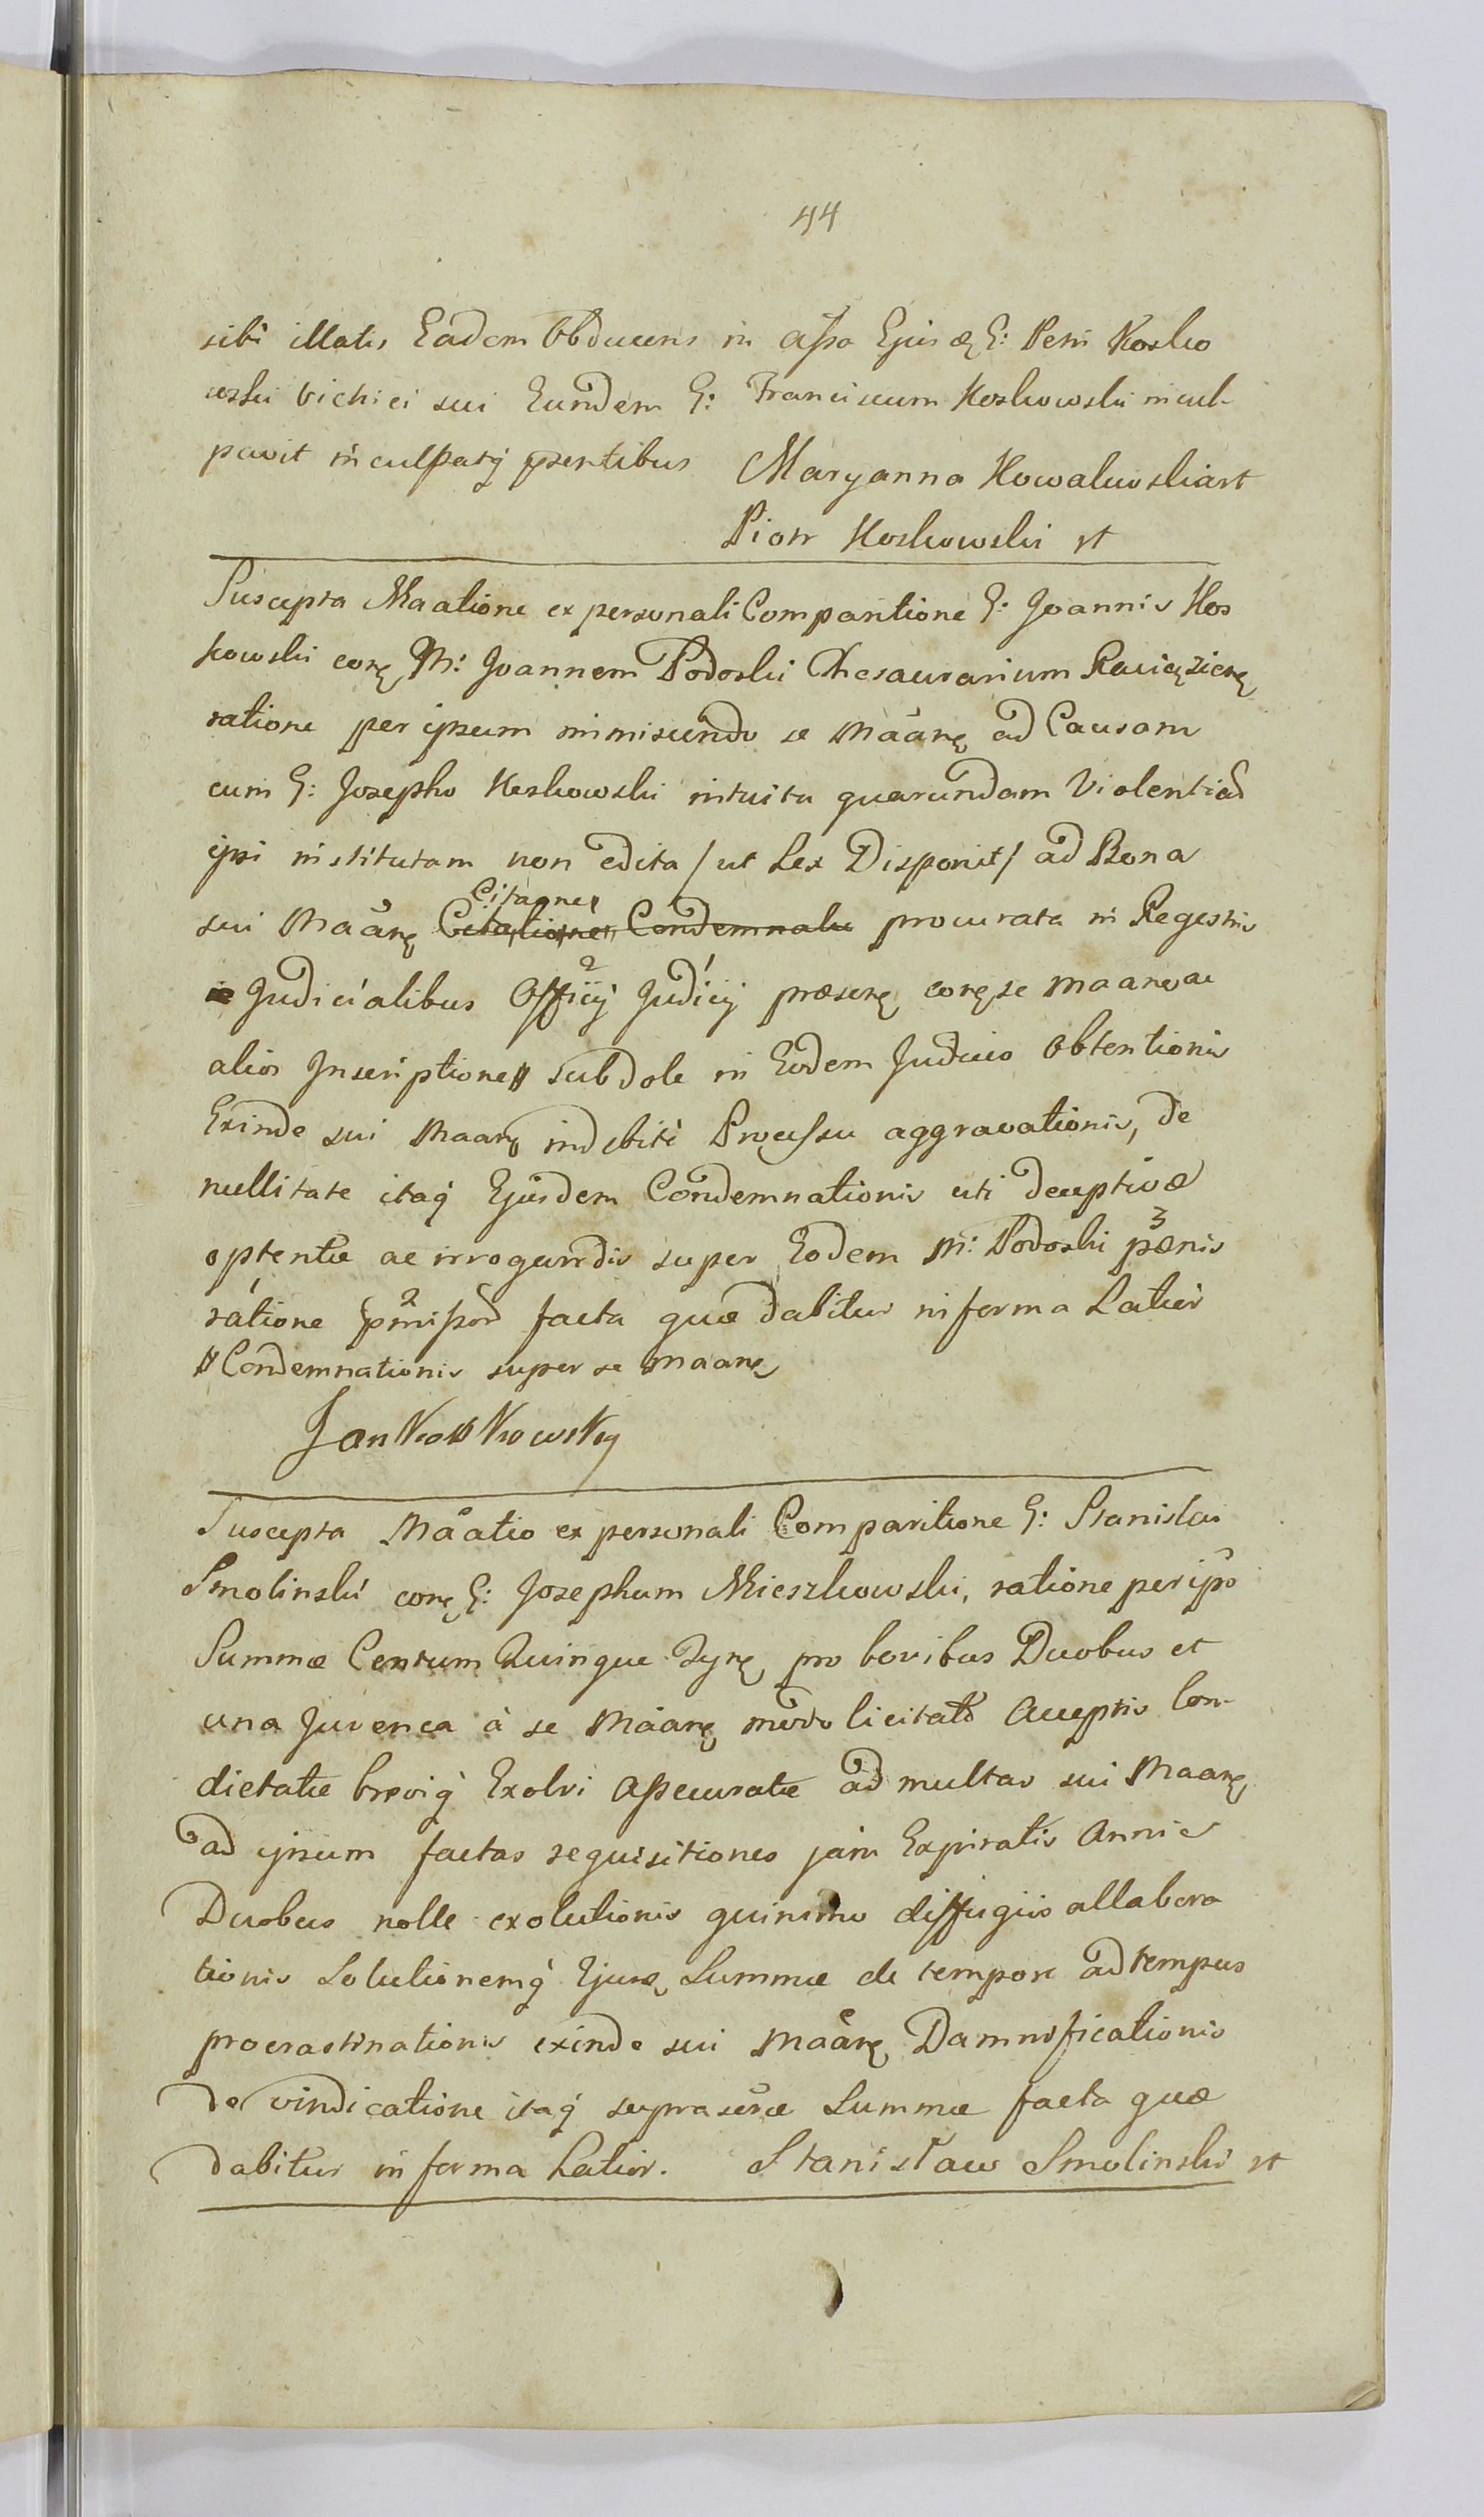 44
sibi illatis Eadem Obducens in assa Ejusdę G: Petri Kosko
wski vichiei sui Eundem G: Franciscum Koskowski incul-
pavit inculpatq̀ pꝛsentibus Maryanna Kowalewskiast
Piotr Koskowski st
Suscepta Maatione ex personali Comparitione G: Joannis Kos
kowski corę M: Joannem Podoski Thesaurarium Ravięzienę
ratione per ipsum inmiscendo se Maanę ad Causam
cum G: Josepho Koskowski intuitu quarundam Violentiad
ipsi institutam non edita / ut Lex Disponit / ad Bona
sui Maanę Citaone Citatione Condemnatu procurata in Regestris
Judicialibus Officij Judicij præsenę corę se maanę ac
alios Inscriptione # subdole in Eodem Judicio Obtentionis
Exinde sui Maanę indebiti Processu aggravationis, de
nullitate itaq̀ Ejusdem Condemnationis uti deceptivæ
optentæ ac irrogandis super Eodem M: Podoski pænis
ratione pꝛmissor facta quæ dabitur in forma Latior
# Condemnationis super se maanę
Jan Koskowsky
Suscepta Maatio ex personali Comparitione G: Stanislai
Smolinski corę G: Josephum Mieszkowski, ratione per ipso
Summæ Centum Quinque Tynę pro bovibus Duobus et
una Juvenca à se Maanę modo licitato Acceptis Con-
dictatæ breviq̀ Exolvi Assecuratæ ad multas sui Maanę
ad ipsum factas requisitiones jam Expiratis Annis
Duobus nolle exolutionis quinimo diffugiis allabora
tionis Solutionemq̀ Ejusdę Summæ de tempore ad tempus
procrastinationis exinde sui Maanę Damnificationis
De vindicatione itaq̀ suprascræ Summæ facta quæ
dabitur in forma Latior. Stanisław Smolinski st